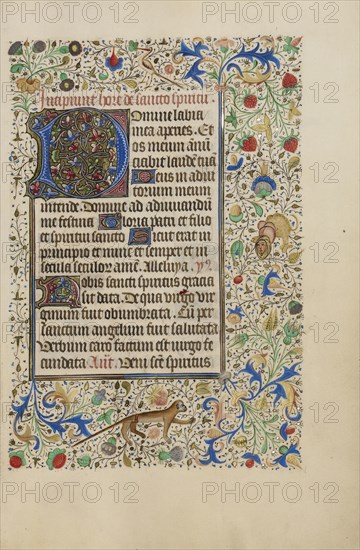 Incipiunt hore de sancto spiritu.
Domine labia
mea aperies. Et
os meum annū
ciabit laudē tuā
Deus in adiu
torium meum
intende. Domine ad adiuuandū
me festina Gloria patri et filio
et spiritui sancto Sicut erat in
principio et nunc et semper et in
secula seculor amē. Alleluya.
Nobis sancti spiritus gracia
sit data. De qua virgo vir
ginum fuit obumbrata. Cū per
sanctum angelum fuit salutata
Verbum caro factum est virgo fe
cundata Añt. Veni sctē spiritus
PHOTO 12